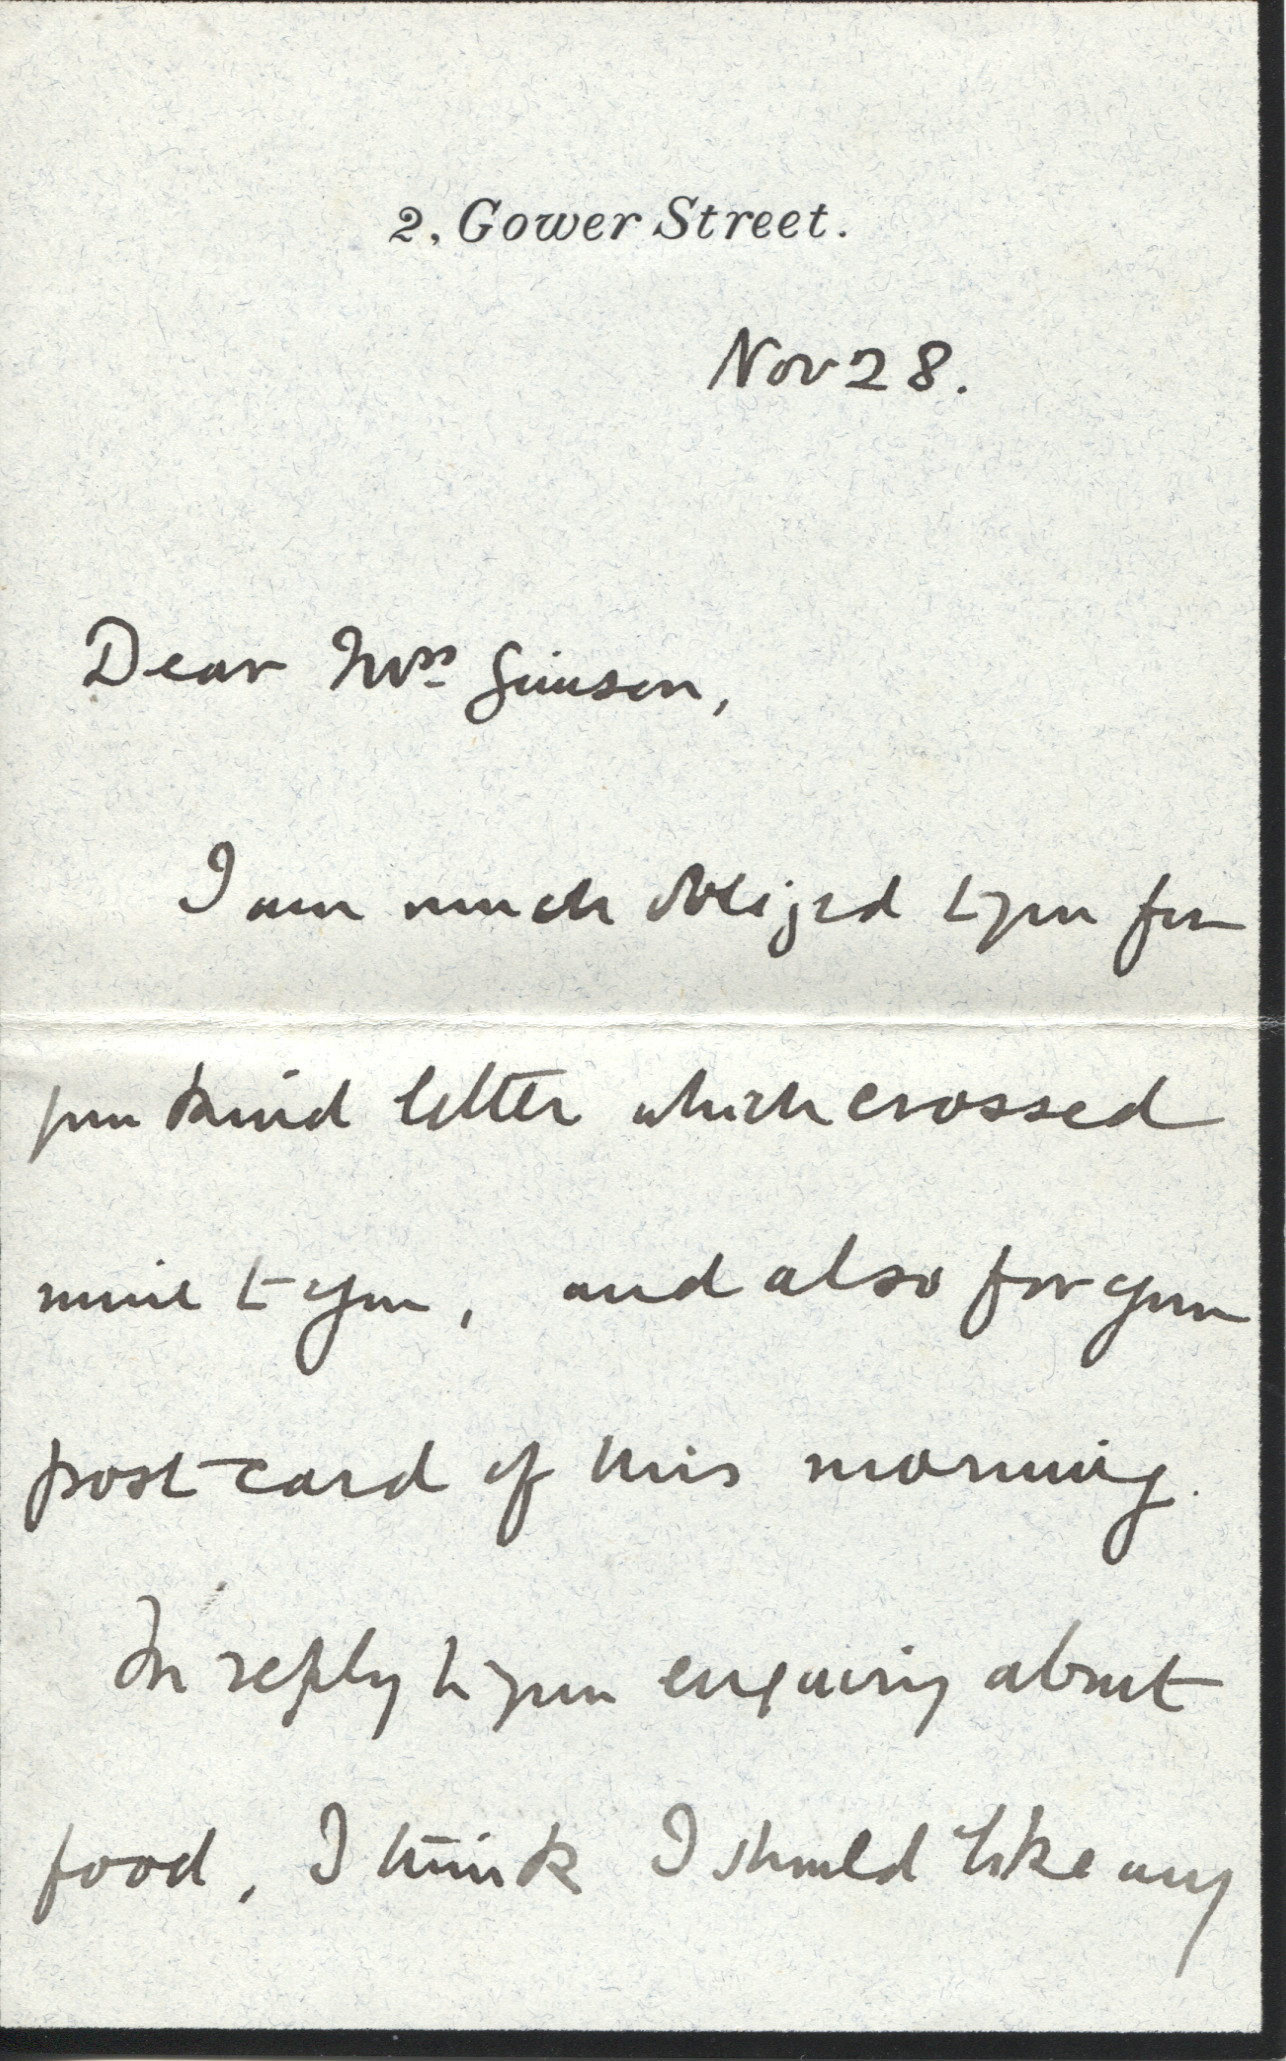 2, Gower Street.
Nov 28.
Dear Mrs Gimson,
I am much obliged to you for
your kind letter which crossed
mine to you, and also for your
post-card of this morning.
In reply to your enquiry about
food, I think I should like my